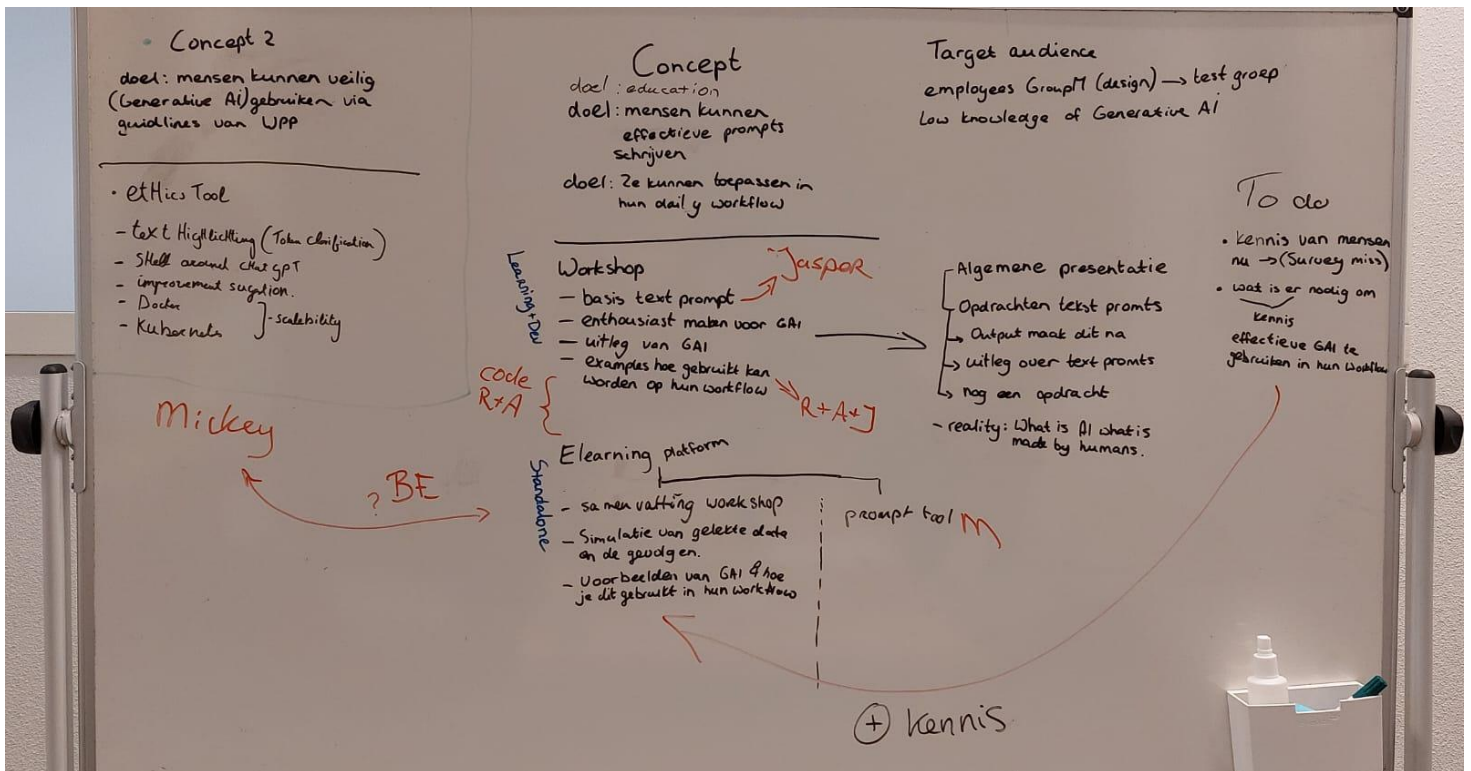 Concept 2
doel: mensen kunnen veilig
(Generative AI) gebruiken via
guidlines van WPP
• etHics Tool
- text Highlichting (Token Clarification)
- SHell around chat gpT
- improvement sugestion.
- Docker
- Kubernets
]- scalebility
Mickey
? BE
Concept
doel: education
doel: mensen kunnen
effectieve prompts
schrijven
doel: Ze kunnen toepassen in
hun daily workflow
Learning + Dev
Workshop
- basis text prompt
Jasper
- enthousiast maken voor GAI
- uitleg van GAI
- examples hoe gebruikt kan
worden op hun workflow
R+A+J
code
R+A
Standalone
Elearning platform
- samenvatting workshop
- Simulatie van gelekte data
en de gevolgen.
- Voorbeelden van GAI & hoe
je dit gebruikt in hun workflow
prompt tool M
Target audience
employees GroupM (design) → test groep
Low knowledge of Generative AI
Algemene presentatie
Opdrachten tekst promts
Output maak dit na
uitleg over text promts
nog een opdracht
- reality: What is AI what is
made by humans.
To do
• kennis van mensen
nu → (Survey miss)
• wat is er nodig om
kennis
effectieve GAI te
gebruiken in hun workflow
+ kennis